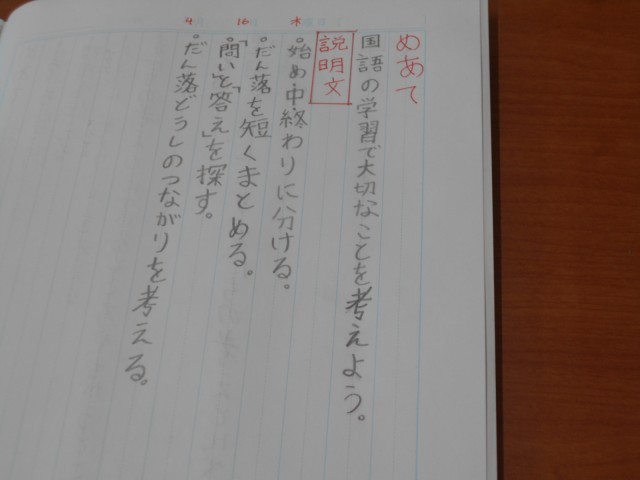 4 16 水
めあて
国語の学習で大切なことを考えよう。
説明文
・始め中終わりに分ける。
・だん落を短くまとめる。
・「問い」と「答え」を探す。
・だん落どうしのつながりを考える。